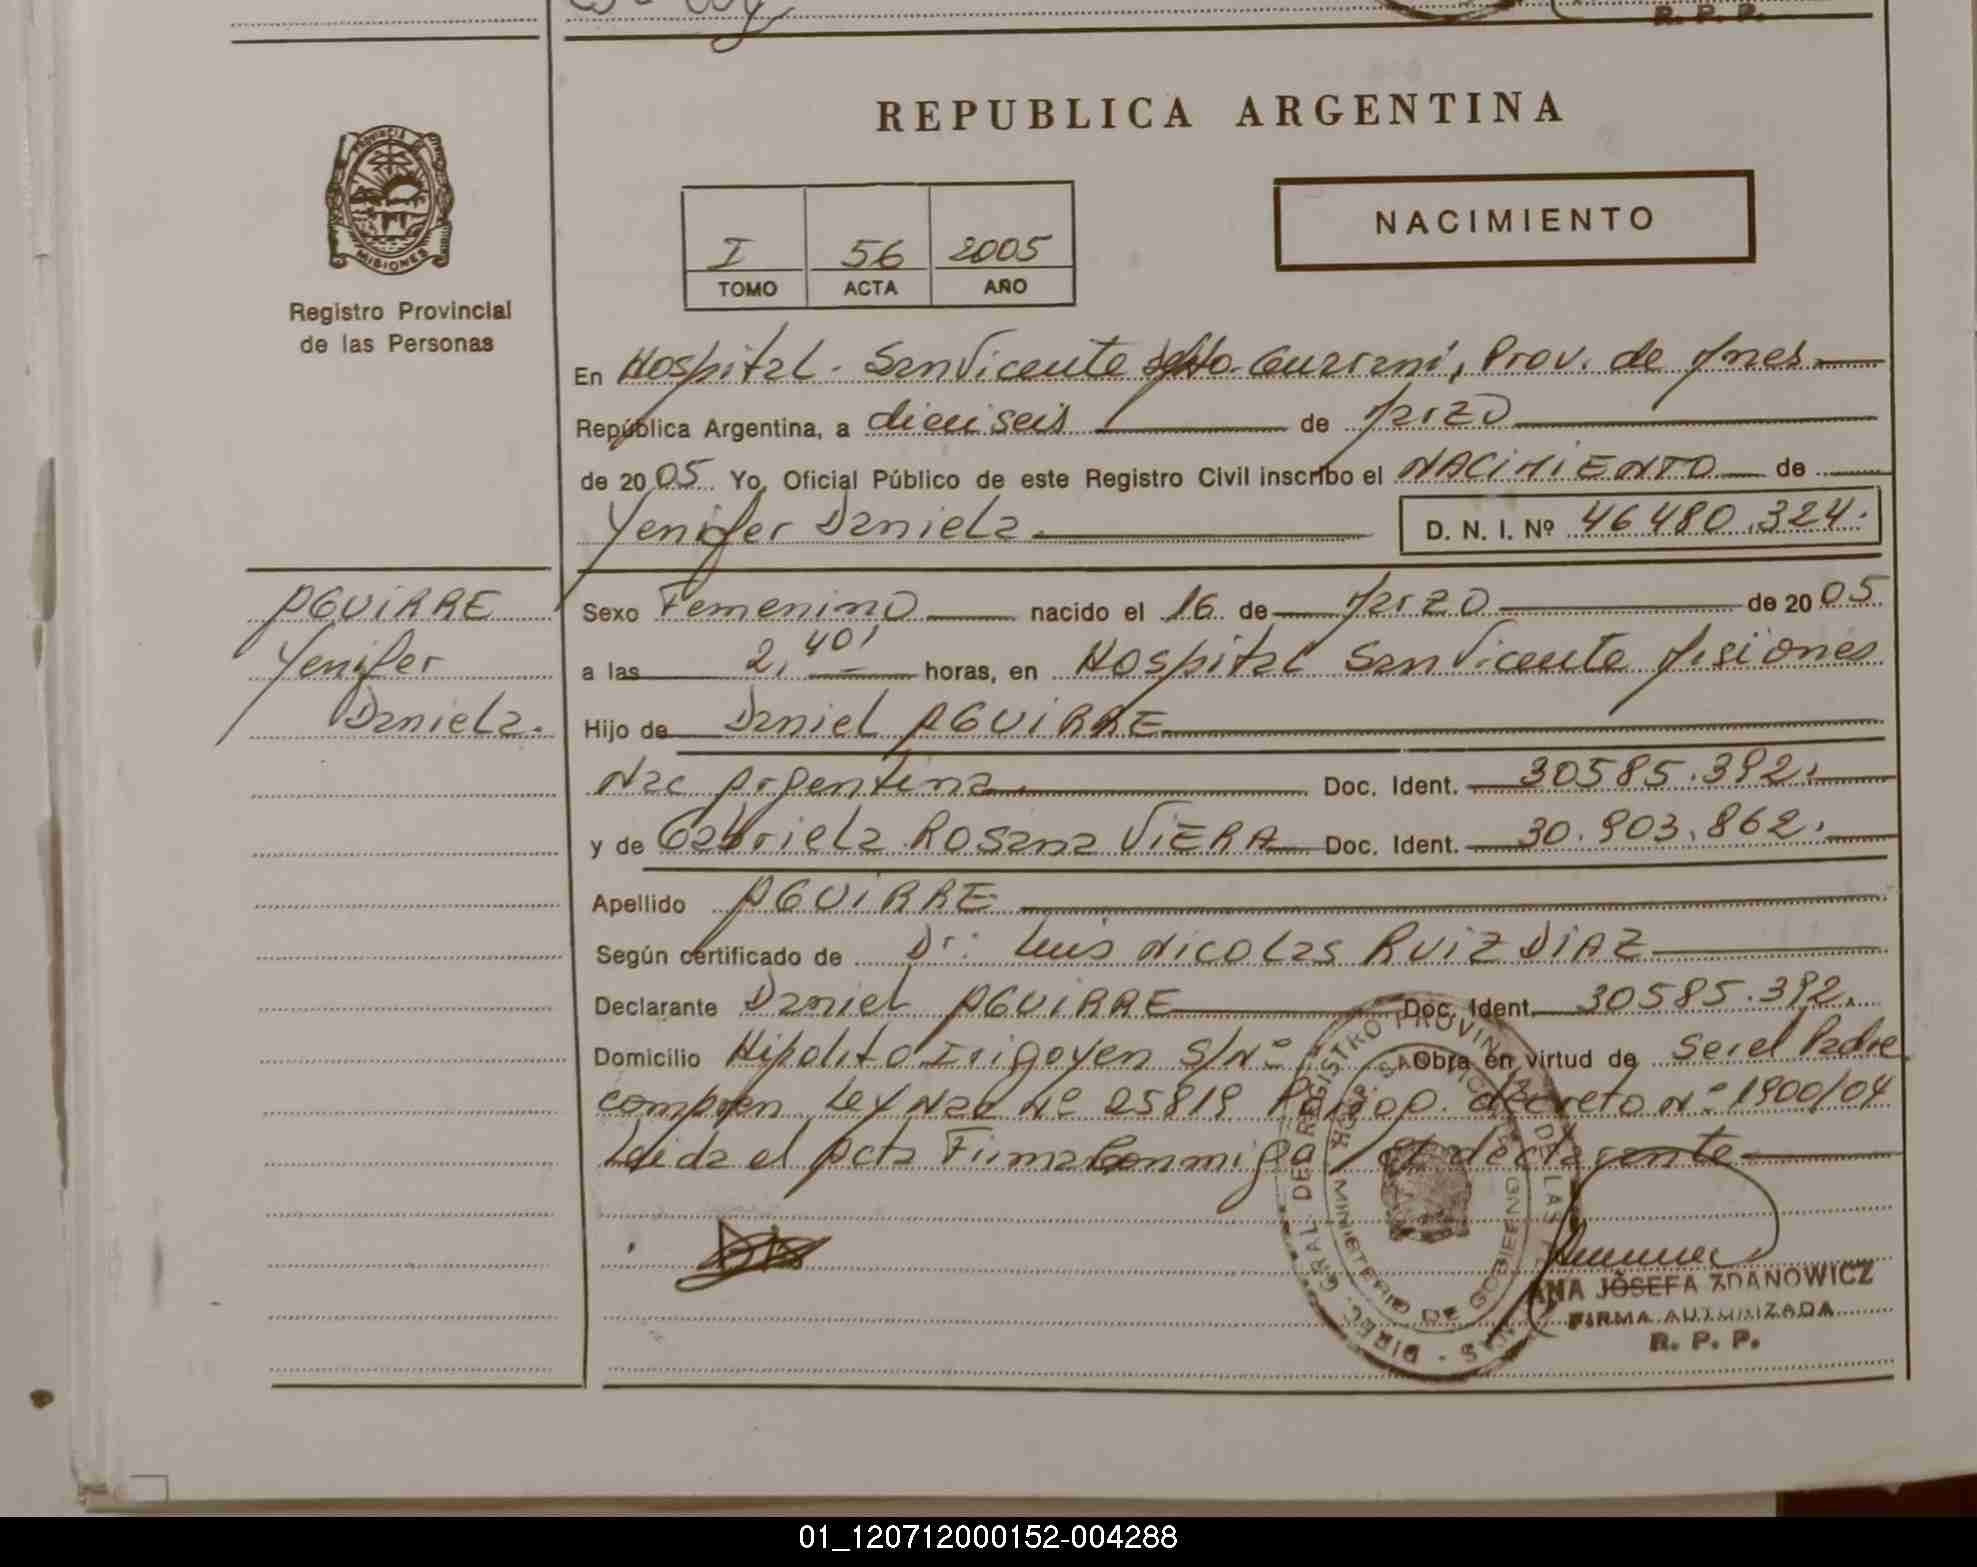 R. P. P.
REPUBLICA ARGENTINA
Provincia de
MISIONES
Registro Provincial
de las Personas
I 56 2005
TOMO ACTA AÑO
NACIMIENTO
En Hospital. San Vicente Dpto. Guarani, Prov. de Mnes
República Argentina, a dieciseis de Marzo
de 2005. Yo, Oficial Público de este Registro Civil inscribo el NACIMIENTO de
Yenifer Daniela. D. N. I. Nº 46480.324.
AGUIRRE
Yenifer
Daniela.
Sexo Femenino nacido el 16 de Marzo de 2005
a las 2,40' horas, en Hospital San Vicente Misiones
Hijo de Daniel AGUIRRE
Nac Argentina. Doc. Ident. 30585.392.
y de Gabriela Rosana VIERA Doc. Ident. 30.903.862.
Apellido AGUIRRE
Según certificado de Dr: Luis Nicolas RUIZ DIAZ
Declarante Daniel AGUIRRE Doc. Ident. 30585.392.
Domicilio Hipolito Irigoyen S/Nº Obra en virtud de ser el Padre
compren Ley Nac Nº 25819 decreto Nº 1900/04
Leida el Acta Firma conmigo el declarante
DIREC. GRAL. DE REGISTRO PROVINCIAL DE LAS PERSONAS
MINISTERIO DE GOBIERNO
ANA JOSEFA ZDANOWICZ
FIRMA AUTORIZADA
R. P. P.
01_120712000152-004288